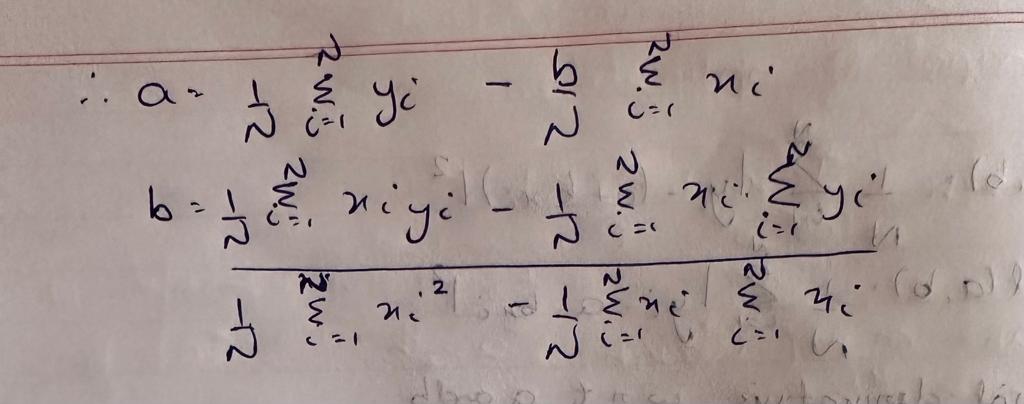 ∴ a = 1/N Σ_{i=1}^{N} y_i - b/N Σ_{i=1}^{N} x_i
b = 1/N Σ_{i=1}^{N} x_i y_i - 1/N Σ_{i=1}^{N} x_i Σ_{i=1}^{N} y_i
1/N Σ_{i=1}^{N} x_i² - 1/N Σ_{i=1}^{N} x_i Σ_{i=1}^{N} x_i